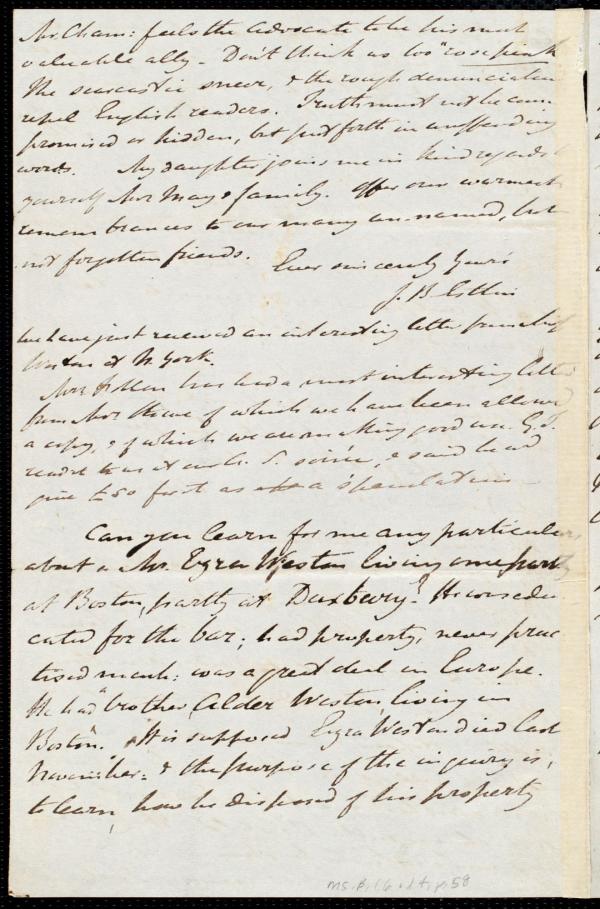 Mr. Cham: feels the Advocate to be his most
valuable ally - Don't think us too "rose pink
The sarcastic sneer, & the rough denunciation
repel English readers. Truth must not be com-
promised or hidden, but put forth in unoffending
words. My daughter joins me in kind regards to
yourself Mrs May & family. Offer our warmest
remembrances to our many un-named, but
not forgotten friends.
Ever sincerely Yours
J. B. Estlin
We have just received an interesting letter from
of N. York.
Mrs Follen has had a most interesting letter
from Mrs Stowe of which we have been allowed
a copy, & of which we are making good use. G. T.
read it to us at our A. S. soirée, & said he'd
give £50 for it as a speculation
Can you learn for me any particulars
about a Mr. Ezra Weston living partly
at Boston, partly at Duxbury? He was edu-
cated for the bar; had property, never prac
tised much: was a great deal in Europe.
He had a brother, Alder Weston, living in
Boston. It is supposed Ezra Weston died last
November: & the purpose of the inquiry is,
to learn, how he disposed of his property
MS. B. 1.6 v. 4, p. 58